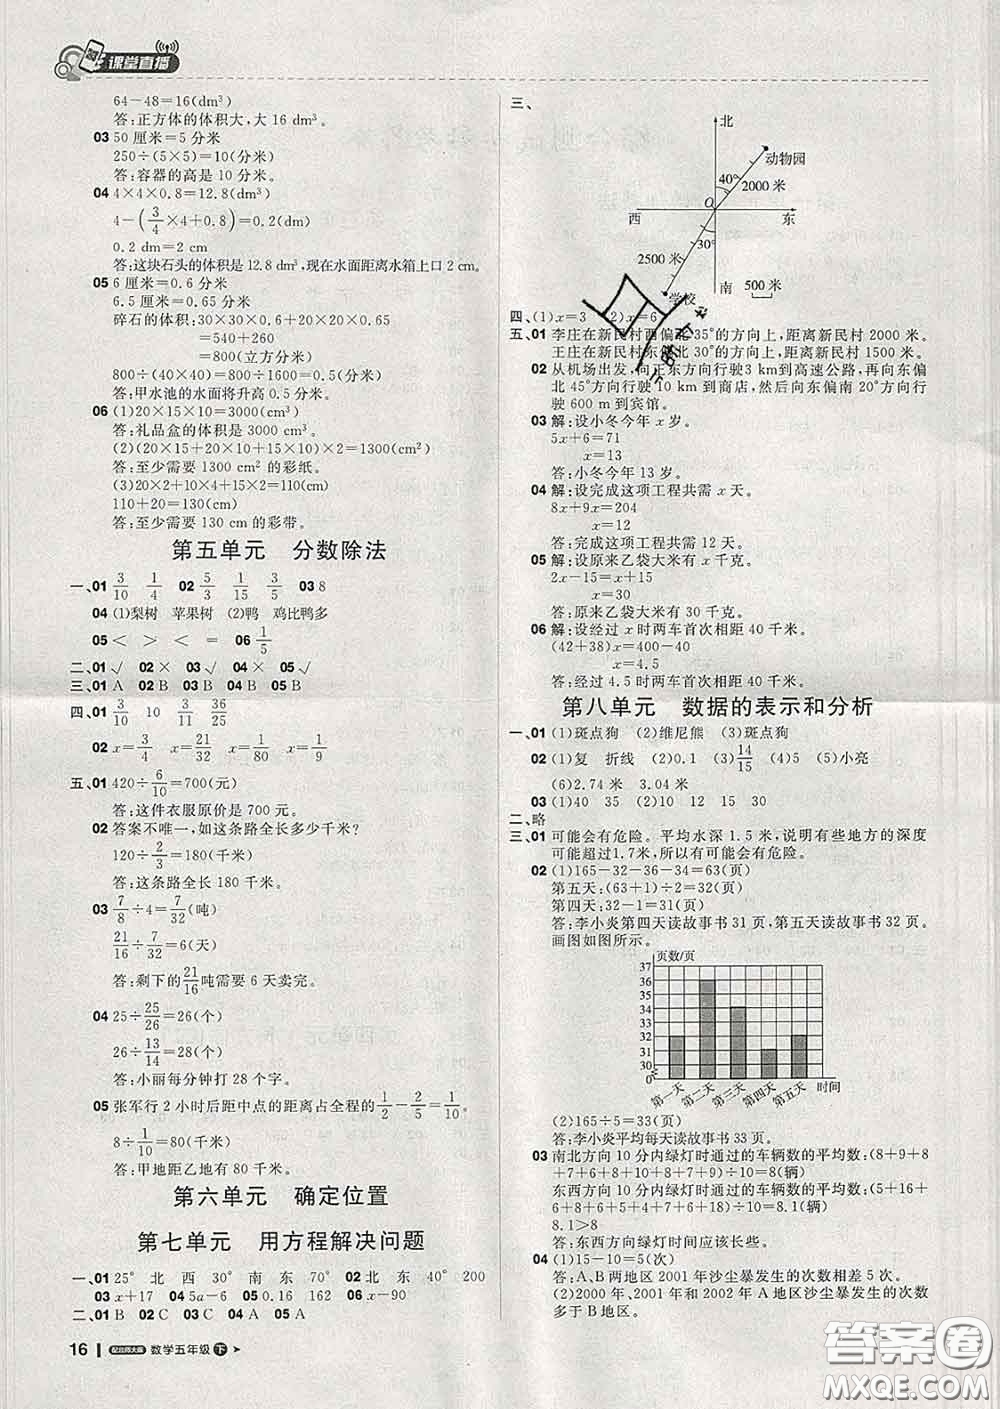 课堂直播
64－48＝16(dm³)
答:正方体的体积大,大 16 dm³。
03 50 厘米＝5 分米
250÷(5×5)＝10(分米)
答:容器的高是 10 分米。
04 4×4×0.8＝12.8(dm³)
4－(3/4×4＋0.8)＝0.2(dm)
0.2 dm＝2 cm
答:这块石头的体积是 12.8 dm³,现在水面距离水箱上口 2 cm。
05 6 厘米＝0.6 分米
6.5 厘米＝0.65 分米
碎石的体积:30×30×0.6＋20×20×0.65
＝540＋260
＝800(立方分米)
800÷(40×40)＝800÷1600＝0.5(分米)
答:甲水池的水面将升高 0.5 分米。
06 (1)20×15×10＝3000(cm³)
答:礼品盒的体积是 3000 cm³。
(2)(20×15＋20×10＋15×10)×2＝1300(cm²)
答:至少需要 1300 cm² 的彩纸。
(3)20×2＋10×4＋15×2＝110(cm)
110＋20＝130(cm)
答:至少需要 130 cm 的彩带。
第五单元 分数除法
一、01 3/10 1/4 02 5/3 1/15 3/5 03 8
04 (1)梨树 苹果树 (2)鸭 鸡比鸭多
05 ＜ ＞ ＜ ＝ 06 1/5
二、01 √ 02 × 03 √ 04 × 05 √
三、01 A 02 B 03 B 04 B 05 B
四、01 3/10 10 3/11 36/25
02 x＝3/4 x＝21/32 x＝1/80 x＝1/90
五、01 420÷6/10＝700(元)
答:这件衣服原价是 700 元。
02 答案不唯一,如这条路全长多少千米?
120÷2/3＝180(千米)
答:这条路全长 180 千米。
03 7/8÷4＝7/32(吨)
21/16÷7/32＝6(天)
答:剩下的21/16吨需要 6 天卖完。
04 25÷25/26＝26(个)
26÷13/14＝28(个)
答:小丽每分钟打 28 个字。
05 张军行 2 小时后距中点的距离占全程的1/2－2/5＝1/10。
8÷1/10＝80(千米)
答:甲地距乙地有 80 千米。
第六单元 确定位置
第七单元 用方程解决问题
一、01 25° 北 西 30° 南 东 70° 02 北 东 40° 200
03 x＋17 04 5a－6 05 0.16 162 06 x－90
二、01 B 02 C 03 C 04 A 05 A
16 配北师大版 数学五年级 下
三、
北
动物园
40°
2000 米
西
O
东
30°
2500 米
南
500 米
学校
四、(1)x＝3 (2)x＝6
五、01 李庄在新民村西偏北 35°的方向上,距离新民村 2000 米。
王庄在新民村东偏北 30°的方向上,距离新民村 1500 米。
02 从机场出发,向正东方向行驶3 km到高速公路,再向东偏
北 45°方向行驶 10 km 到商店,然后向东偏南 20°方向行
驶 600 m 到宾馆。
03 解:设小冬今年 x 岁。
5x＋6＝71
x＝13
答:小冬今年 13 岁。
04 解:设完成这项工程共需 x 天。
8x＋9x＝204
x＝12
答:完成这项工程共需 12 天。
05 解:设原来乙袋大米有 x 千克。
2x－15＝x＋15
x＝30
答:原来乙袋大米有 30 千克。
06 解:设经过 x 时两车首次相距 40 千米。
(42＋38)x＝400－40
x＝4.5
答:经过 4.5 时两车首次相距 40 千米。
第八单元 数据的表示和分析
一、01 (1)斑点狗 (2)维尼熊 (3)斑点狗
02 (1)复 折线 (2)0.1 (3)14/15 (4)5 (5)小亮
(6)2.74 米 3.04 米
03 (1)40 35 (2)10 12 15 30
二、略
三、01 可能会有危险。平均水深 1.5 米,说明有些地方的深度
可能超过1.7米,所以有可能会有危险。
02 (1)165－32－36－34＝63(页)
第五天:(63＋1)÷2＝32(页)
第四天:32－1＝31(页)
答:李小炎第四天读故事书 31 页,第五天读故事书 32 页。
画图如图所示。
页数/页
37
36
35
34
33
32
31
30
0
第一天 第二天 第三天 第四天 第五天 时间
(2)165÷5＝33(页)
答:李小炎平均每天读故事书 33 页。
03 南北方向 10 分内绿灯时通过的车辆数的平均数:(8＋9＋8
＋7＋6＋8＋7＋8＋10＋9)÷10＝8(辆)
东西方向 10 分内绿灯时通过的车辆数的平均数:(5＋16＋
6＋8＋6＋5＋4＋7＋6＋18)÷10＝8.1(辆)
8.1＞8
答:东西方向绿灯时间应该长些。
04 (1)15－10＝5(次)
答:A、B 两地区 2001 年沙尘暴发生的次数相差 5 次。
(2)2000、2001 年和 2002 年 A 地区沙尘暴发生的次数
多于 B 地区。
答案圈
MXQE.COM